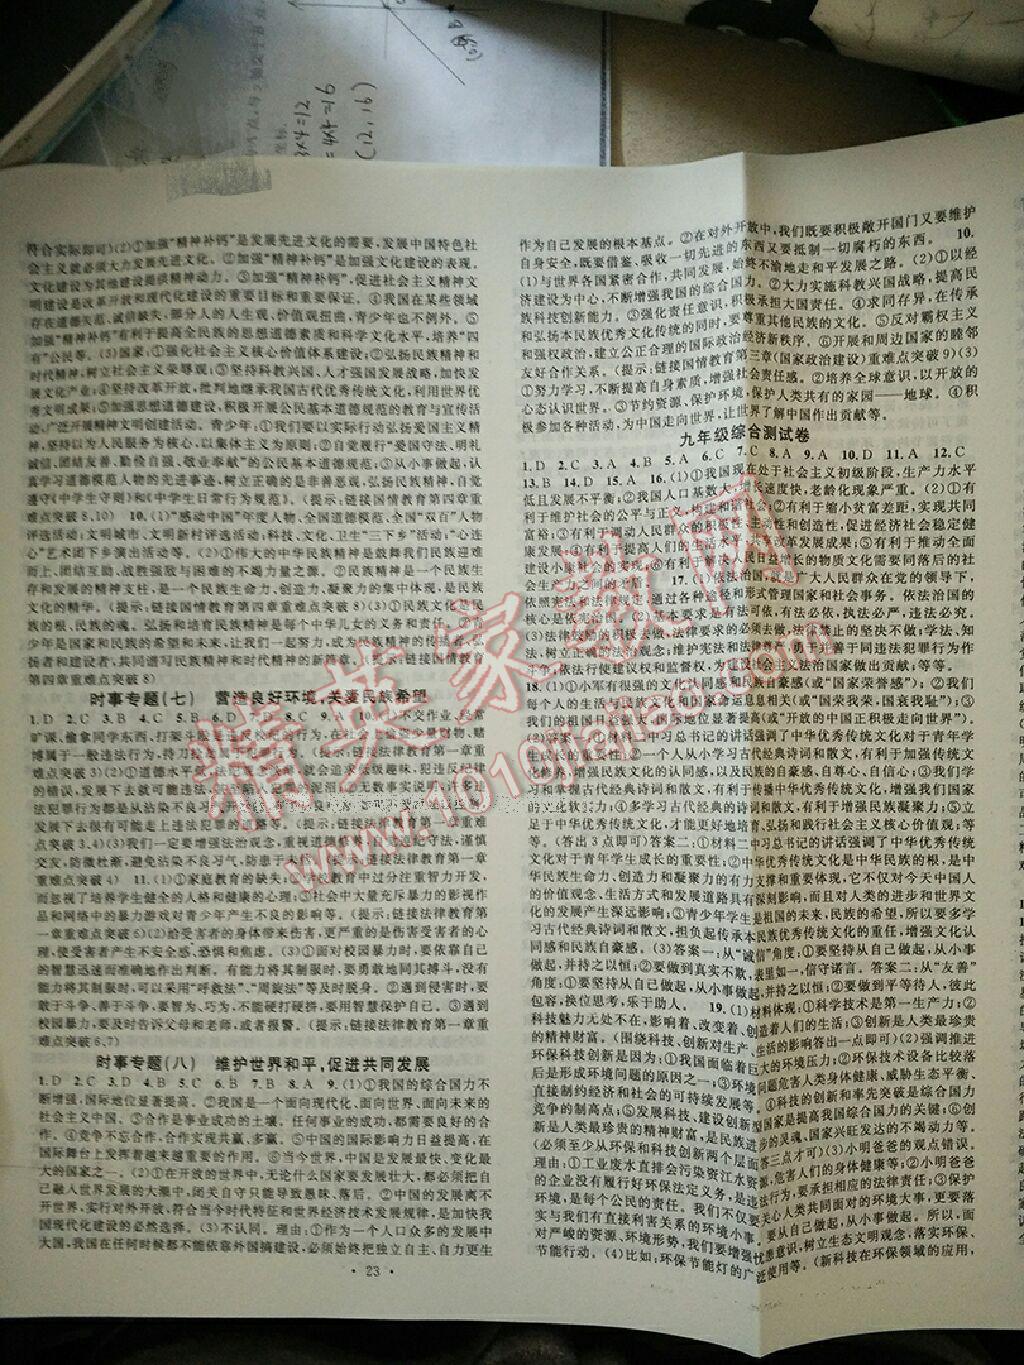 3×4=12
=4×4=16
(12,16)
符合实际即可)(2)①加强“精神补钙”是发展先进文化的需要,发展中国特色社
会主义就必须大力发展先进文化。②加强“精神补钙”是加强文化建设的表现。
文化建设为其他建设提供精神动力。③加强“精神补钙”,促进社会主义精神文
明建设是改革开放和现代化建设的重要目标和重要保证。④我国在某些领域
存在道德失范、诚信缺失,部分人的人生观、价值观扭曲,青少年也不例外。⑤
加强“精神补钙”有利于提高全民族的思想道德素质和科学文化水平,培养“四
有”公民等。(3)国家:①强化社会主义核心价值体系建设;②弘扬民族精神和
时代精神,树立社会主义荣辱观;③坚持科教兴国、人才强国发展战略,加快发
展文化产业;④坚持改革开放,批判地继承我国古代优秀传统文化,利用世界优
秀文明成果;⑤加强思想道德建设,积极开展公民基本道德规范的教育与宣传活
动,广泛开展精神文明创建活动。青少年:①我们要以实际行动弘扬爱国主义精
神,坚持以为人民服务为核心,以集体主义为原则;②自觉履行“爱国守法、明礼
诚信、团结友善、勤俭自强、敬业奉献”的公民基本道德规范。③从小事做起,认
真学习道德模范人物的先进事迹,树立正确的是非善恶观,提高自身素质,自觉
遵守《中学生守则》和《中学生日常行为规范》。(提示:链接国情教育第四章重
难点突破8、10) 10.(1)“感动中国”年度人物、全国道德模范、全国“双百”人物
评选活动;文明城市、文明新村评选活动;科技、文化、卫生“三下乡”活动;“心连
心”艺术团下乡演出活动等。(2)①伟大的中华民族精神是鼓舞我们民族迎难
而上、团结互助、战胜强敌与困难的不竭力量之源。②民族精神是一个民族生
存和发展的精神支柱,是一个民族生命力、创造力、凝聚力的集中体现,是民族
文化的精华。(提示:链接国情教育第四章重难点突破8)(3)①民族文化是民
族的根、民族的魂。弘扬和培育民族精神是每个中华儿女的义务和责任。②青
少年是国家和民族的希望和未来,让我们一起努力,成为民族精神的传播者、弘
扬者和建设者,共同谱写民族精神和时代精神的新篇章。(提示:链接国情教育
第四章重难点突破8)
时事专题(七) 营造良好环境,关爱民族希望
1.D 2.C 3.C 4.C 5.B 6.D 7.D 8.C 9.A 10.(1)不交作业、经常
旷课、偷拿同学东西、打架斗殴
违法行为,持刀抢劫
重难点突破3)(2)①道德水平低、法纪观念淡薄,就会追求低级趣味,犯违反纪律
的错误,发展下去就可能违法、
法犯罪行为都是从沾染不良习气开始的
发展下去很有可能走上违法犯罪的道路等。(提示:链接法律教育第一章重难点
突破3、4)(3)我们一定要增强法治观念,重视道德修养,自觉遵纪守法,谨慎
交友,防微杜渐,避免沾染不良习气,防患于未然。(提示:链接法律教育第一章
重难点突破4) 11.(1)①家庭教育的缺失;②学校教育中过分注重智力开发,
而忽视了培养学生健全的人格和健康的心理;③社会中大量充斥暴力的影视作
品和网络中的暴力游戏对青少年产生不良的影响等。(提示:链接法律教育第
一章重难点突破6)(2)给受害者的身体带来伤害,更严重的是伤害受害者的心
理,使受害者产生不安全感、恐惧和焦虑。(3)①面对校园暴力时,要依靠自己
的智慧迅速而准确地作出判断。有能力将其制服时,要勇敢地同其搏斗,没有
能力将其制服时,可以采取“呼救法”、“周旋法”等及时脱身。②遇到侵害时,要
敢于斗争、善于斗争,要智为、巧为,不能硬打硬拼,要用智慧保护自己。③遇到
校园暴力,要及时告诉父母和老师,或者报警。(提示:链接法律教育第一章重
难点突破6、7)
时事专题(八) 维护世界和平,促进共同发展
1.D 2.C 3.D 4.B 5.C 6.B 7.B 8.A 9.(1)①我国的综合国力不
断增强,国际地位显著提高。②我国是一个面向现代化、面向世界、面向未来的
社会主义中国。③合作是事业成功的土壤。任何事业的成功,都需要良好的合
作。④竞争不忘合作,合作实现共赢、多赢。⑤中国的国际影响力日益提高,在
国际舞台上发挥着越来越重要的作用。⑥当今世界,中国是发展最快、变化最
大的国家之一。(2)①在开放的世界中,无论什么国家要发展壮大,都必须把自
己融入世界发展的大潮中,闭关自守只能导致愚昧、落后。②中国的发展离不
开世界,实行对外开放,符合当今时代特征和世界经济技术发展规律,是加快我
国现代化建设的必然选择。(3)不认同。理由:①作为一个人口众多的发展中
大国,我国在任何时候都不能依靠外国搞建设,必须始终把独立自主、自力更生
作为自己发展的根本基点。②在对外开放中,我们既要积极敞开国门又要维护
自身安全,既要借鉴、吸收一切先进的东西又要抵制一切腐朽的东西。 10.
(1)与世界各国紧密合作,共同发展,始终不渝地走和平发展之路。(2)①以经
济建设为中心,不断增强我国的综合国力。②大力实施科教兴国战略,提高民
族科技创新能力。③强化责任意识,积极承担大国责任。④求同存异,在传承
和弘扬本民族优秀文化传统的同时,要尊重其他民族的文化。⑤反对霸权主义
和强权政治,建立公正合理的国际政治经济新秩序。⑥开展和周边国家的睦邻
友好合作关系。(提示:链接国情教育第三章(国家政治建设)重难点突破9)(3)
①努力学习,不断提高自身素质,增强社会责任感。②培养全球意识,以开放的
心态认识世界。③节约资源,保护环境,保护人类共有的家园——地球。④积
极参加各种活动,为中国走向世界,让世界了解中国作出贡献等。
九年级综合测试卷
1.D 2.C 3.A 4.B 5.A 6.C 7.C 8.A 9.D 10.D 11.A 12.C
13.B 14.D 15.A 16.(1)①我国现在处于社会主义初级阶段,生产力水平
低且发展不平衡;②我国人口基数大,增长速度快,老龄化现象严重。(2)①有
利于维护社会的公平与正义,构建和谐社会;②有利于缩小贫富差距,实现共同
富裕;③有利于调动人民群众的积极性、主动性和创造性,促进经济社会稳定健
康发展;④有利于提高人们的生活水平,共享改革发展成果;⑤有利于推动全面
建设小康社会的实现;⑥有利于解决人民日益增长的物质文化需要同落后的社
会生产力之间的矛盾。 17.(1)依法治国,就是广大人民群众在党的领导下,
依照宪法和法律规定,通过各种途径和形式管理国家和社会事务。依法治国的
核心是依宪治国。(2)基本要求是有法可依,有法必依,执法必严,违法必究。
(3)法律鼓励的积极去做,法律要求的必须去做,法律禁止的坚决不做;学法、知
法,树立正确的法治观念;维护宪法和法律尊严,勇于并善于同违法犯罪行为作
斗争;依法行使建议权和监督权,为建设社会主义法治国家做出贡献;等等。
18.(1)①小军有很强的文化认同感和民族自豪感(或“国家荣誉感”)。②我们
每个人的生活与民族文化和国家命运息息相关(或“国荣我荣,国衰我耻”);③
我们的祖国日益强大,国际地位显著提高(或“开放的中国正积极走向世界”)。
(2)答案一:①材料二中习总书记的讲话强调了中华优秀传统文化对于青年学
生成长的重要性;②一个人从小学习古代经典诗词和散文,有利于加强传统文
化修养,增强民族文化的认同感,以及民族的自豪感、自尊心、自信心;③我们学
习和掌握古代经典诗词和散文,有利于传播中华传统文化,有利于增强我们国家
的文化软实力;④多学习古代经典的诗词和散文,有利于增强民族凝聚力;⑤立
足于中华优秀传统文化,才能更好地培育、弘扬和践行社会主义核心价值观;等
等。(答出3点即可)答案二:①材料二中习总书记的讲话强调了中华优秀传统
文化对于青年学生成长的重要性;②中华优秀传统文化是中华民族的根,是中
华民族生命力、创造力和凝聚力的有力支撑和重要体现,它不仅对今天中国人
的价值观念、生活方式和发展道路具有深刻影响,而且对人类的进步和世界文
化的发展产生深远影响;③青少年学生是祖国的未来,民族的希望,所以要多学
习古代经典的诗词和散文,担负起传承本民族优秀传统文化的重任,增强文化认
同感和民族自豪感。(3)答案一:从“诚信”角度:①要坚持从自己做起,从小事
做起,并持之以恒;②要做到真实不欺,表里如一,信守诺言。答案二:从“友善”
角度:①要坚持从自己做起,从小事做起,并持之以恒;②要做到平等待人,彼此
包容,换位思考,乐于助人。 19.(1)材料说明:①科学技术是第一生产力;②
科技魅力无处不在,影响着、改变着、创造着人们的生活;③创新是人类最珍贵
的精神财富。(围绕科技、创新对生产、生活的影响答出一点即可)(2)强调推进
环保科技创新是因为:①我国正面临着巨大的环境压力;②环保技术设备比较落
后是形成环境问题的原因之一;③环境问题危害人类身体健康、威胁生态平衡、
直接制约经济和社会的可持续发展等。①科技的创新和率先突破是综合国力
竞争的制高点;⑤发展科技、建设创新型国家是提高我国综合国力的关键;⑥创
新是人类最珍贵的精神财富,是民族进步的灵魂、国家兴旺发达的不竭动力等。
(必须至少从环保和科技创新两个层面答三点才可)(3)小明爸爸的观点错误。
理由:①工业废水直排会污染资江水资源,危害人们的身体健康等;②小明爸爸
的企业没有履行好环保法定义务,是违法行为,要承担相应的法律责任;③保护
环境,是每个公民的责任。我们不仅要关心人类共同面对的环境大事,更要落
实与我们有直接利害关系的环境小事,要从自己做起,从小事做起。所以,面
对严峻的资源、环境形势,我们要增强忧患意识,树立生态文明观念,落实环保、
节能行动。(4)比如:环保节能灯的广泛使用等。(新科技在环保领域的应用,
· 23 ·
精英家教网
www.1010jiajiao.com